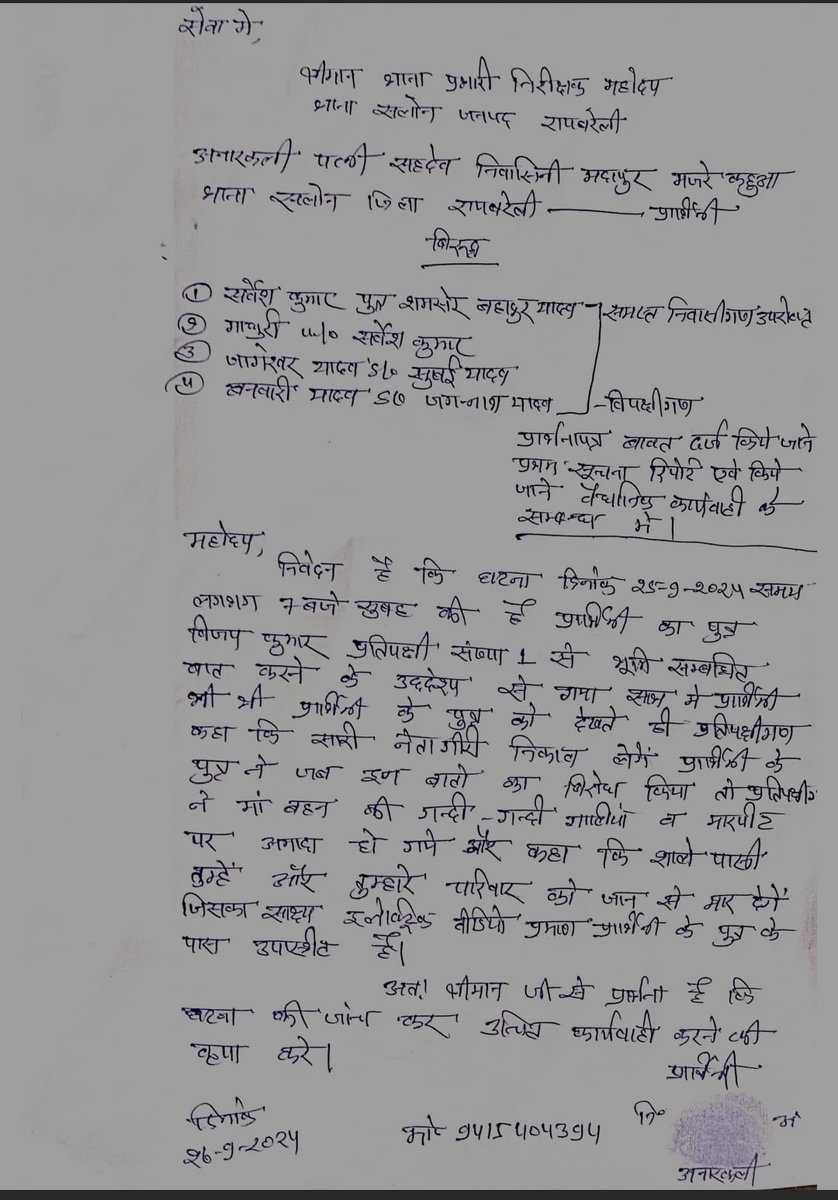 सेवा मे,
श्रीमान थाना प्रभारी निरीक्षक महोदय
थाना सलोन जनपद रायबरेली
अनारकली पत्नी सहदेव निवासिनी मदापुर मजरे कहुआ
थाना सलोन जिला रायबरेली ——— प्रार्थिनी
बिरूद्ध
① सर्वेश कुमार पुत्र शमसेर बहादुर यादव समस्त निवासीगण उपरोक्त
2 माधुरी w/o सर्वेश कुमार
3 जागेश्वर यादव S/o सुबई यादव
4 बनवारी यादव S/o जगन्नाथ यादव —विपक्षीगण
प्रार्थनापत्र बावत दर्ज किये जाने
प्रथम सूचना रिपोर्ट एवं किये
जाने वैधानिक कार्यवाही के
सम्बन्ध में।
महोदय,
निवेदन है कि घटना दिनांक 25-9-2024 समय
लगभग 7 बजे सुबह की है प्रार्थिनी का पुत्र
विजय कुमार प्रतिपक्षी संख्या 1 से भूमि सम्बंधित
बात करने के उददेश्य से गया साथ मे प्रार्थिनी
भी थी प्रार्थिनी के पुत्र को देखते ही प्रतिपक्षीगण
कहा कि सारी नेतागीरी निकाल लेगें प्रार्थिनी के
पुत्र ने जब इन बातो का विरोध किया तो प्रतिपक्षीग
ने मां बहन की गन्दी-गन्दी गालीयां व मारपीट
पर अमादा हो गये और कहा कि शाले पासी
तुम्हें और तुम्हारे परिवार को जान से मार देगें
जिसका साक्ष्य वीडियो प्रमाण प्रार्थिनी के पुत्र के
पास उपस्थीत है।
अतः श्रीमान जी से प्रार्थना है कि
घटना की जांच कर उचित कार्यवाही करने की
कृपा करे।
प्रार्थिनी
दिनांक
26-9-2024
मो० 9415404394
नि० अं
अनारकली